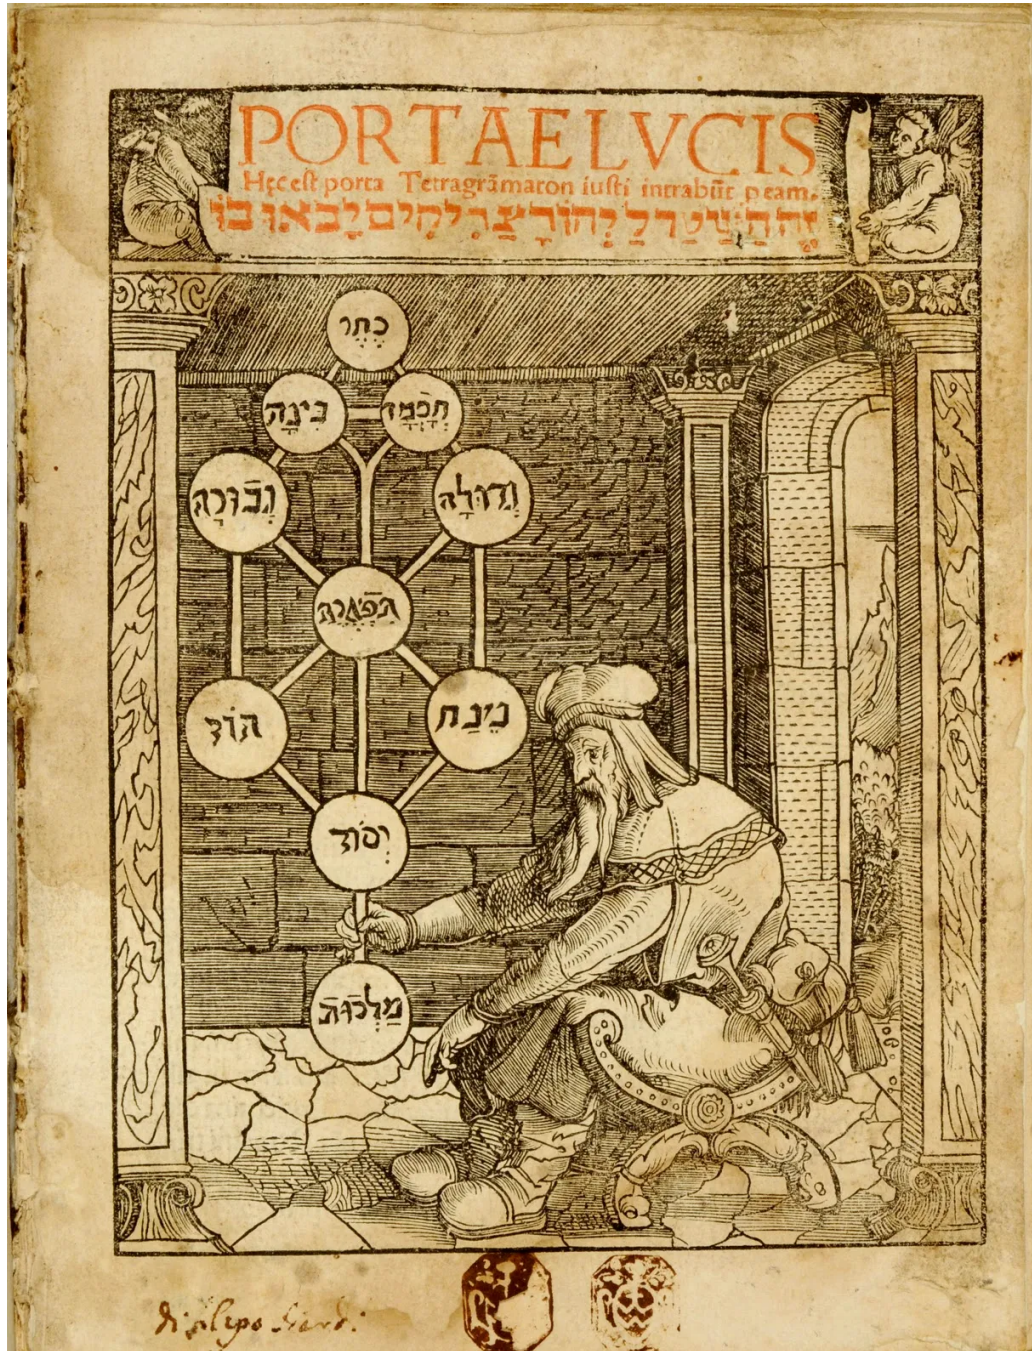 PORTAE LVCIS
Hęc est porta Tetragrāmaton iusti intrabūt p eam.
זֶה הַשַּׁעַר לַיָהוֹרָ צַדִיקִים יָבֹאוּ בוֹ
כֶתֶר
בִינָה
חָכְמָה
גְבוּרָה
גְדוּלָה
תִפְאֶרֶת
הוֹד
נֵצַח
יְסוֹד
מַלְכוּת